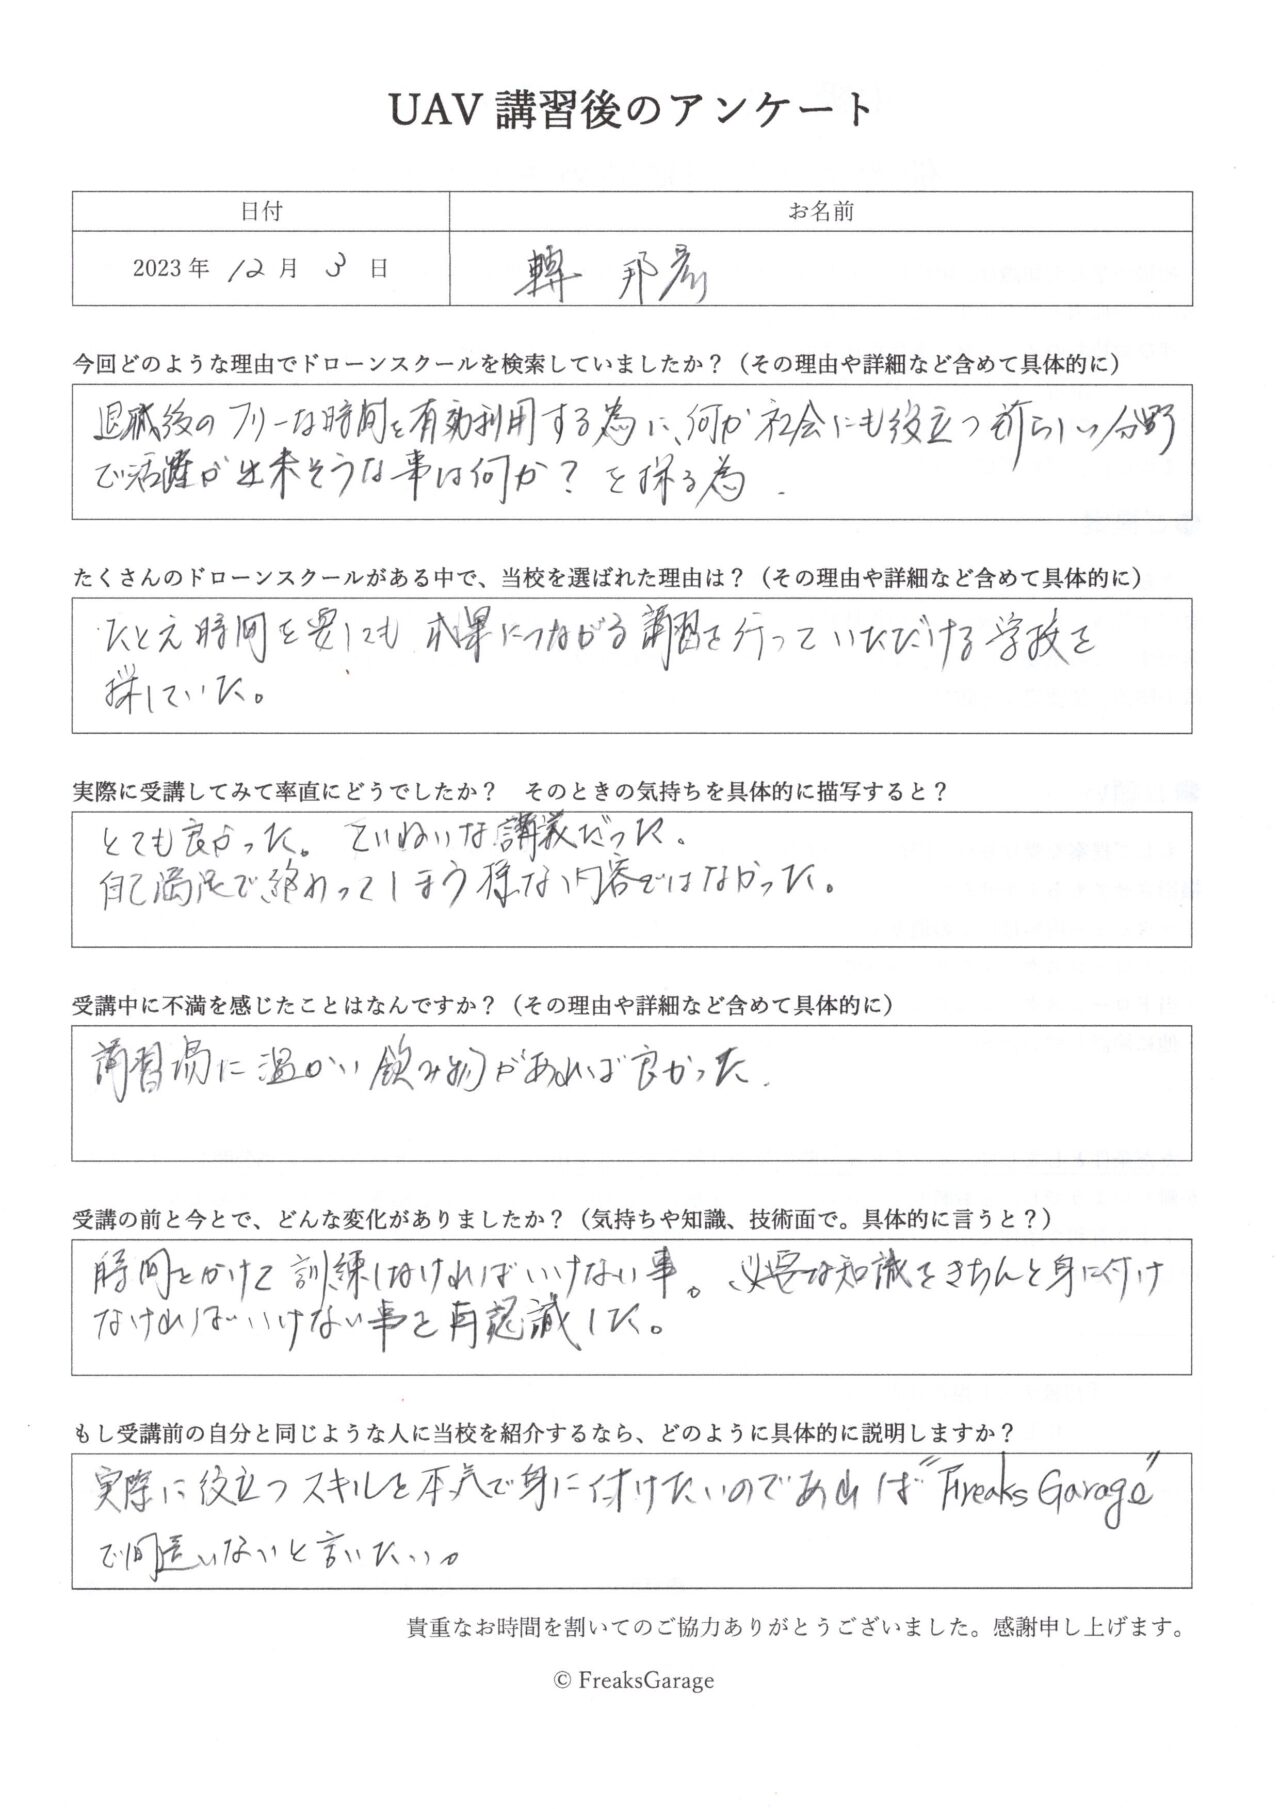 UAV 講習後のアンケート
日付 お名前
2023年 12月 3日 轉 邦彦
今回どのような理由でドローンスクールを検索していましたか？（その理由や詳細など含めて具体的に）
退職後のフリーな時間を有効利用する為に、何か社会にも役立つ新らしい分野
で活躍が出来そうな事は何か？を探る為.
たくさんのドローンスクールがある中で、当校を選ばれた理由は？（その理由や詳細など含めて具体的に）
たとえ時間を要しても 成果につながる講習を行っていただける学校を
探していた。
実際に受講してみて率直にどうでしたか？　そのときの気持ちを具体的に描写すると？
とても良かった。ていねいな講義だった.
自己満足で終わってしまう様な内容ではなかった。
受講中に不満を感じたことはなんですか？（その理由や詳細など含めて具体的に）
講習場に温かい飲み物があれば良かった.
受講の前と今とで、どんな変化がありましたか？（気持ちや知識、技術面で。具体的に言うと？）
時間をかけて訓練しなければいけない事。必要な知識をきちんと身に付け
なければいけない事を再認識した。
もし受講前の自分と同じような人に当校を紹介するなら、どのように具体的に説明しますか？
実際に役立つスキルを本気で身に付けたいのであれば"Freaks Garage"
で間違いないと言いたい。
貴重なお時間を割いてのご協力ありがとうございました。感謝申し上げます。
© FreaksGarage